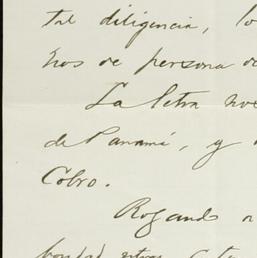 tal diligencia, lo
nos de persona de
La letra
de Panamá, y
Cobro.
Rogando
bondad